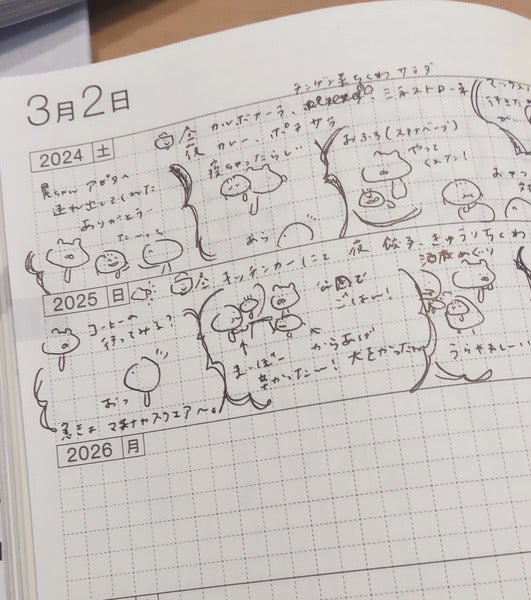 3月2日
チンゲン菜ちくわサラダ
2024 土
昼 カルボナーラ、ミネストローネ
夜 カレー、ポテサラ
兄ちゃん アピタへ
連れ出してくれた
ありがとう
だーっ
寝ちゃったらしい
あら
おふろ(スタイベーブ)
やって
くれた!
2025 日
昼 キッチンカーにて 夜 餃子、きゅうりちくわ
酒蔵めぐり
コーヒーの
行ってみる?
おっ
急きょ マチナカスクエアへ。
公園で
ごはん!
まーぼー
辛かったー!
からあげ
大きかった
うらやましー!
2026 月